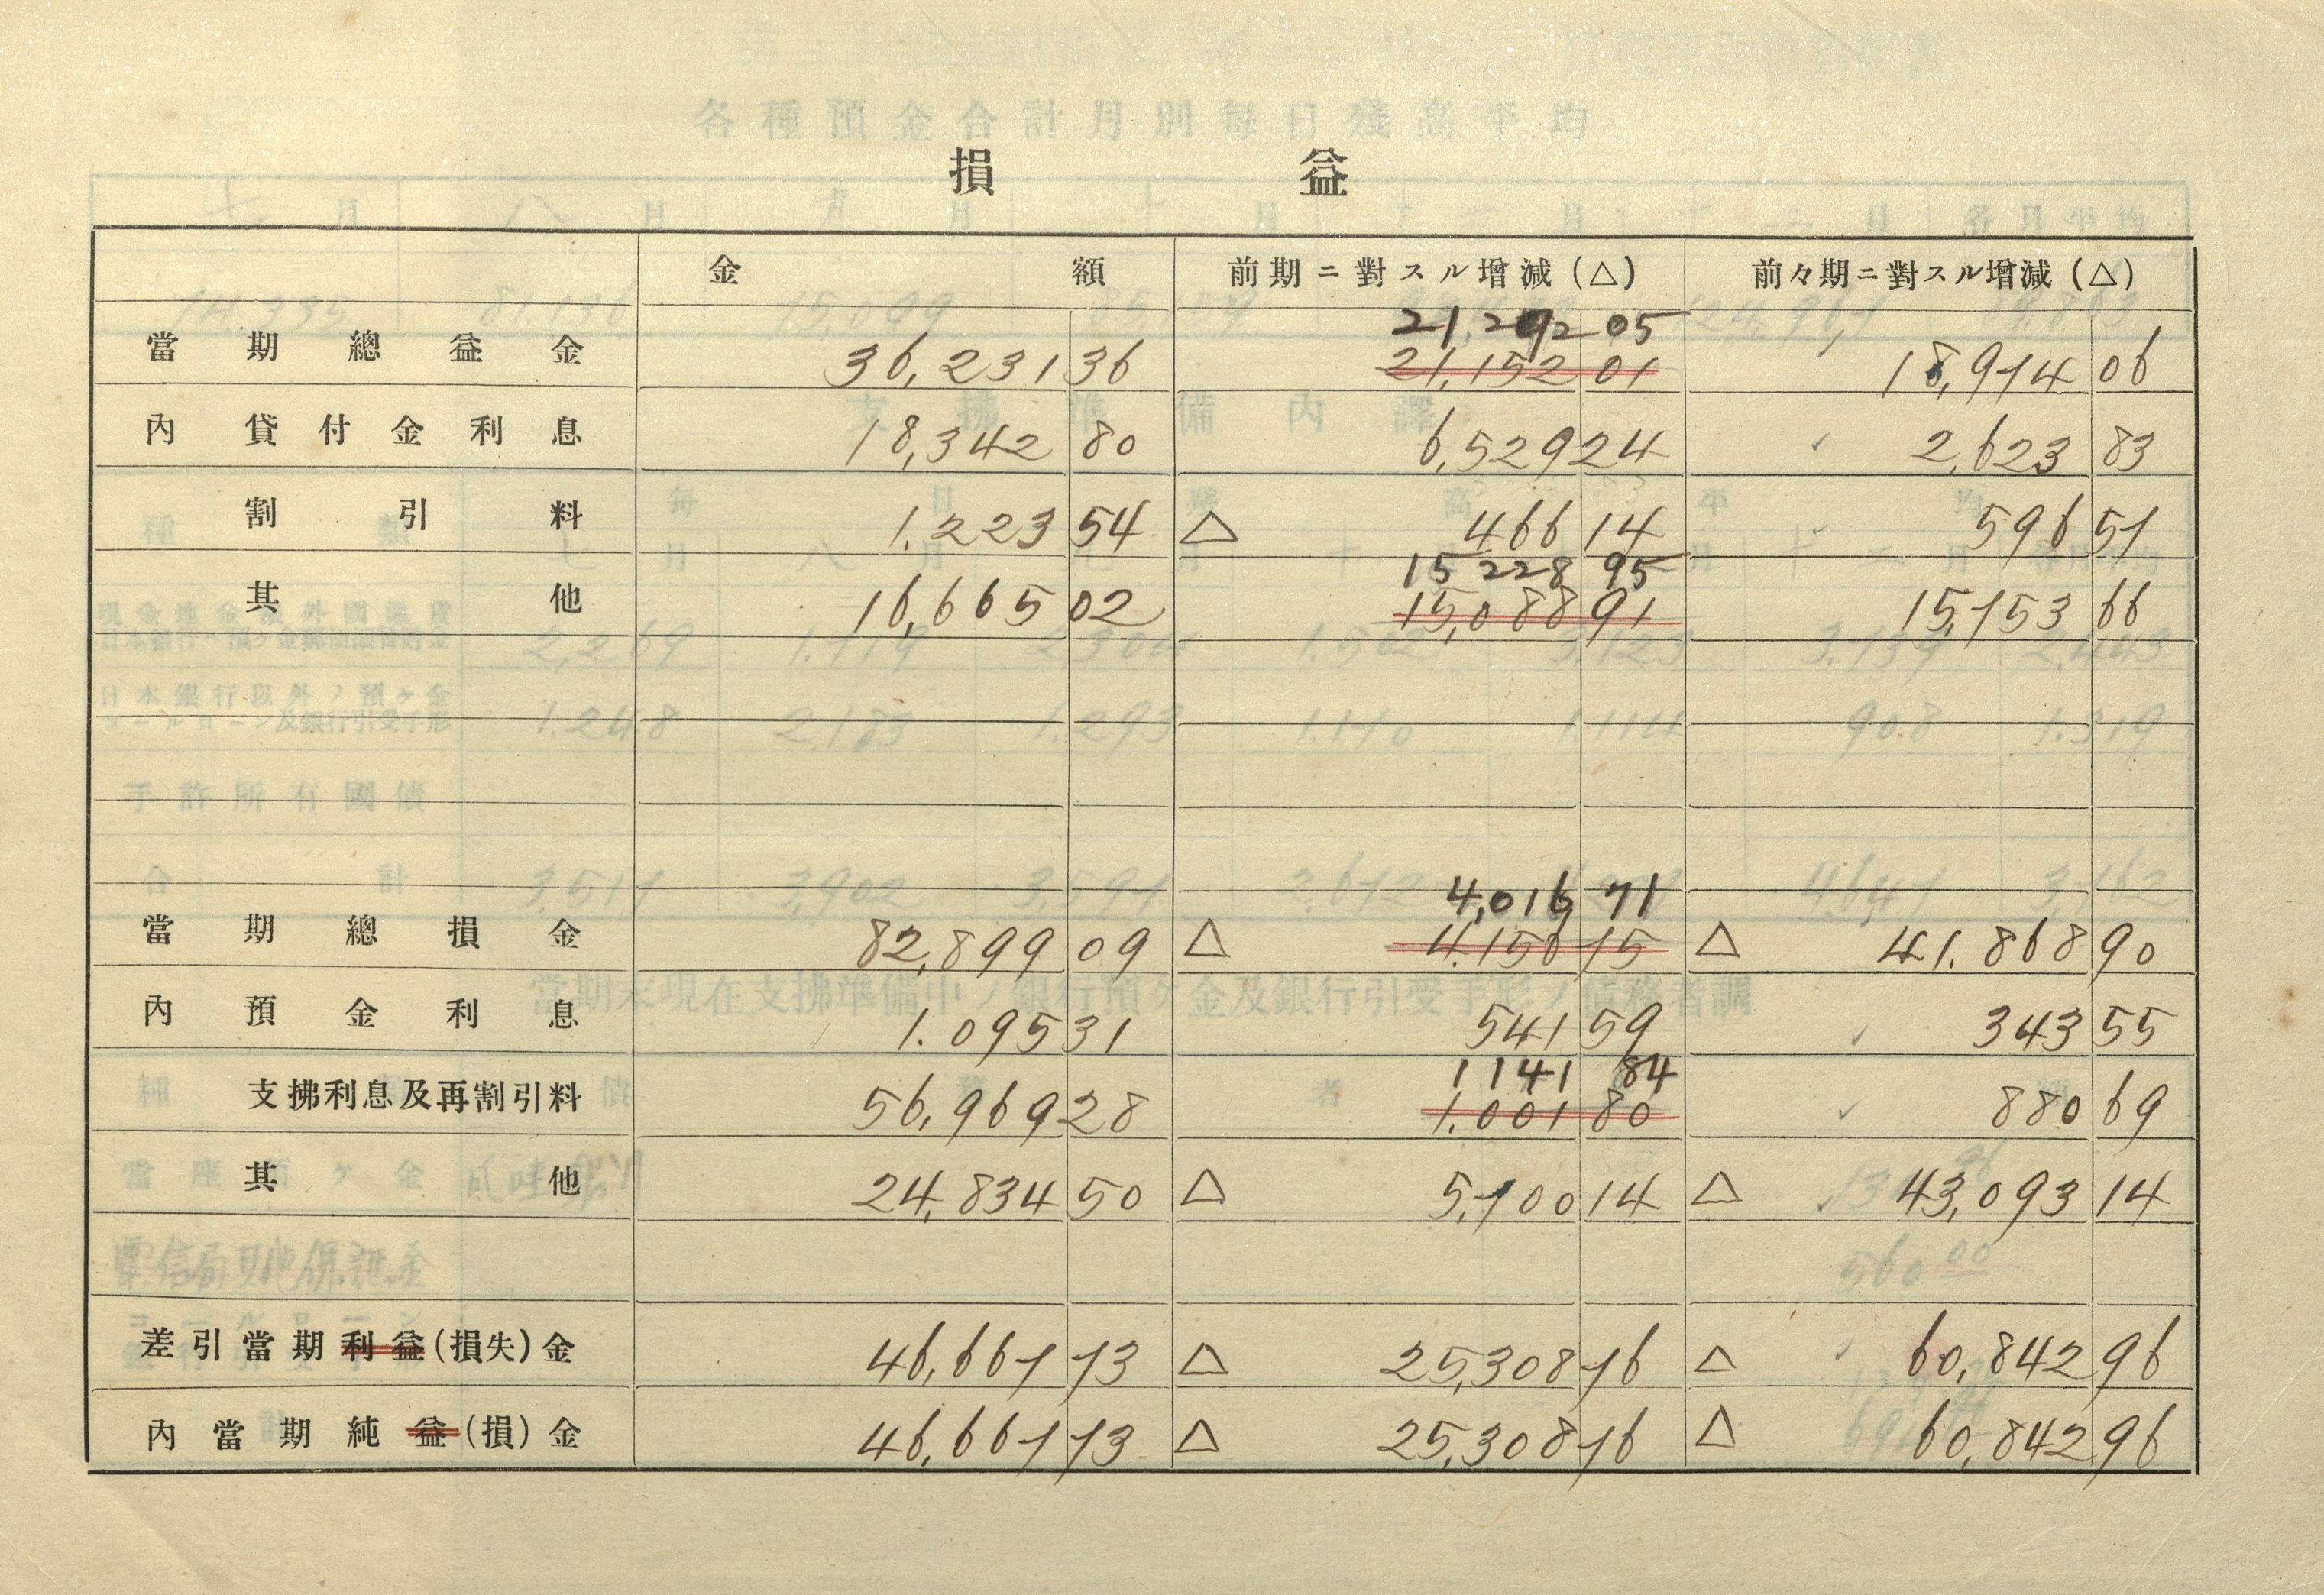 損益
金額 前期ニ對スル增減(△) 前々期ニ對スル增減(△)
21,292 05
當期總益金 36,231 36 21,152 01 18,974 06
內貸付金利息 18,342 80 6,529 24 2,623 83
割引料 1.223 54 △ 466 14 596 57
15 228 95
其他 16,665 02 15,088 91 15,753 66
4,016 71
當期總損金 82,899 09 △ 4.156 75 △ 41.868 90
內預金利息 1.095 31 541 59 343 55
1141 84
支拂利息及再割引料 56,969 28 1.001 80 880 69
其他 24,834 50 △ 5,700 14 △ 43,093 14
差引當期利益(損失)金 46,667 73 △ 25,308 76 △ 60,842 96
內當期純益(損)金 46,667 73 △ 25,308 76 △ 60,842 96